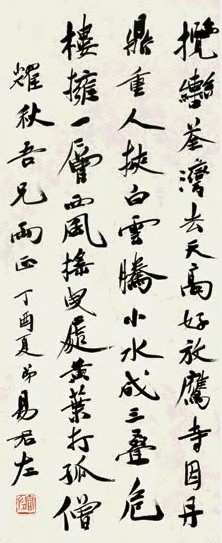 攬轡荃灣去天高好放鷹寺因丹
鼎重人挾白雲騰小水成三疊危
樓擁一層西風搖曳處黃葉打孤僧
耀秋吾兄正丁酉夏弟易君左